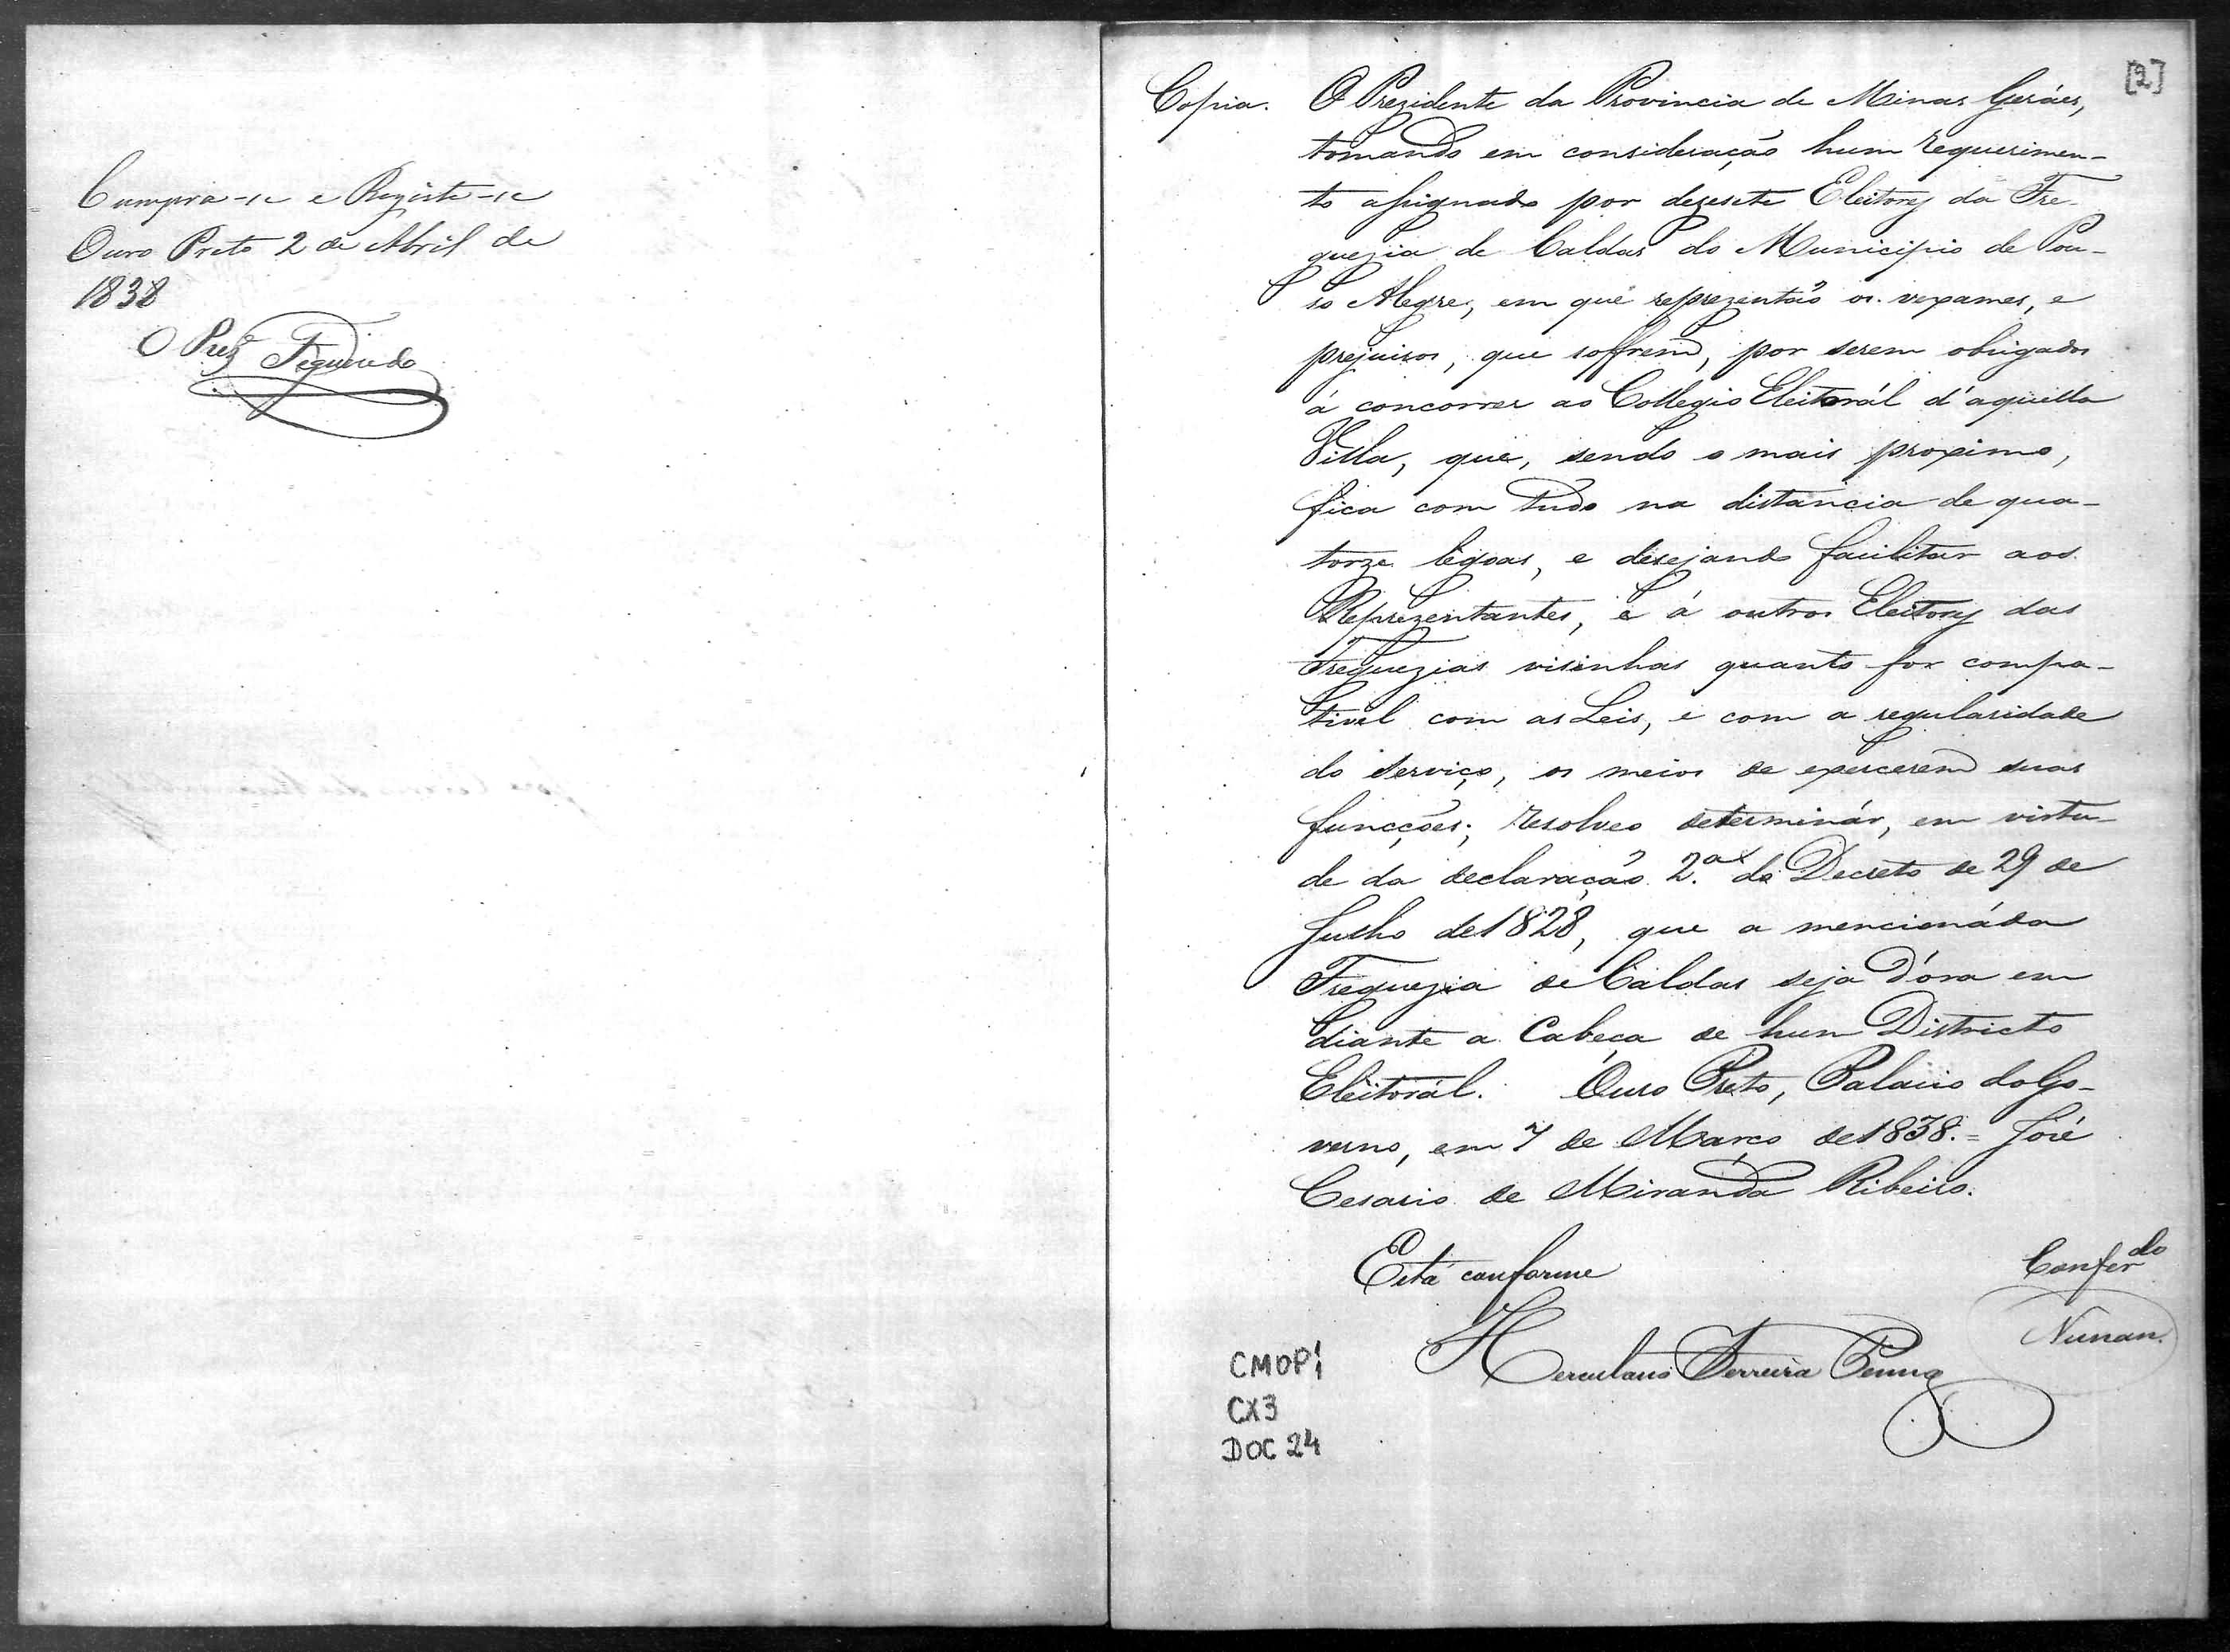 Cumpra-se e Registe-se
Ouro Preto 2 de Abril de
1838
O Prez.e Figueiredo
[2]
Copia. O Prezidente da Provincia de Minas Geráes,
tomando em consideração hum requerimen-
to assignado por dezesete Eleitores da Fre-
guezia de Caldas do Municipio de Pou-
so Alegre, em que reprezentão os vexames, e
prejuisos, que soffrem, por serem obrigados
á concorrer ao Collegio Eleitorál d'aquella
Villa, que, sendo o mais proximo,
fica com tudo na distancia de qua-
torze legoas, e desejando facilitar aos
Reprezentantes, e á outros Eleitores das
Freguezias visinhas quanto for compa-
tivel com as Leis, e com a regularidade
do serviço, os meios de exercerem suas
funcções; resolveo determinár, em virtu-
de da declaração 2.a do Decreto de 29 de
Julho de 1828, que a mencionáda
Freguezia de Caldas seja d'óra em
diante a Cabeça de hum Districto
Eleitorál. Ouro Preto, Palacio do Go-
verno, em 7 de Março de 1838. = José
Cesario de Miranda Ribeiro.
Está conforme
Herculano Ferreira Penna
Confer.do
Nunan.
CMOP1
CX3
DOC 24